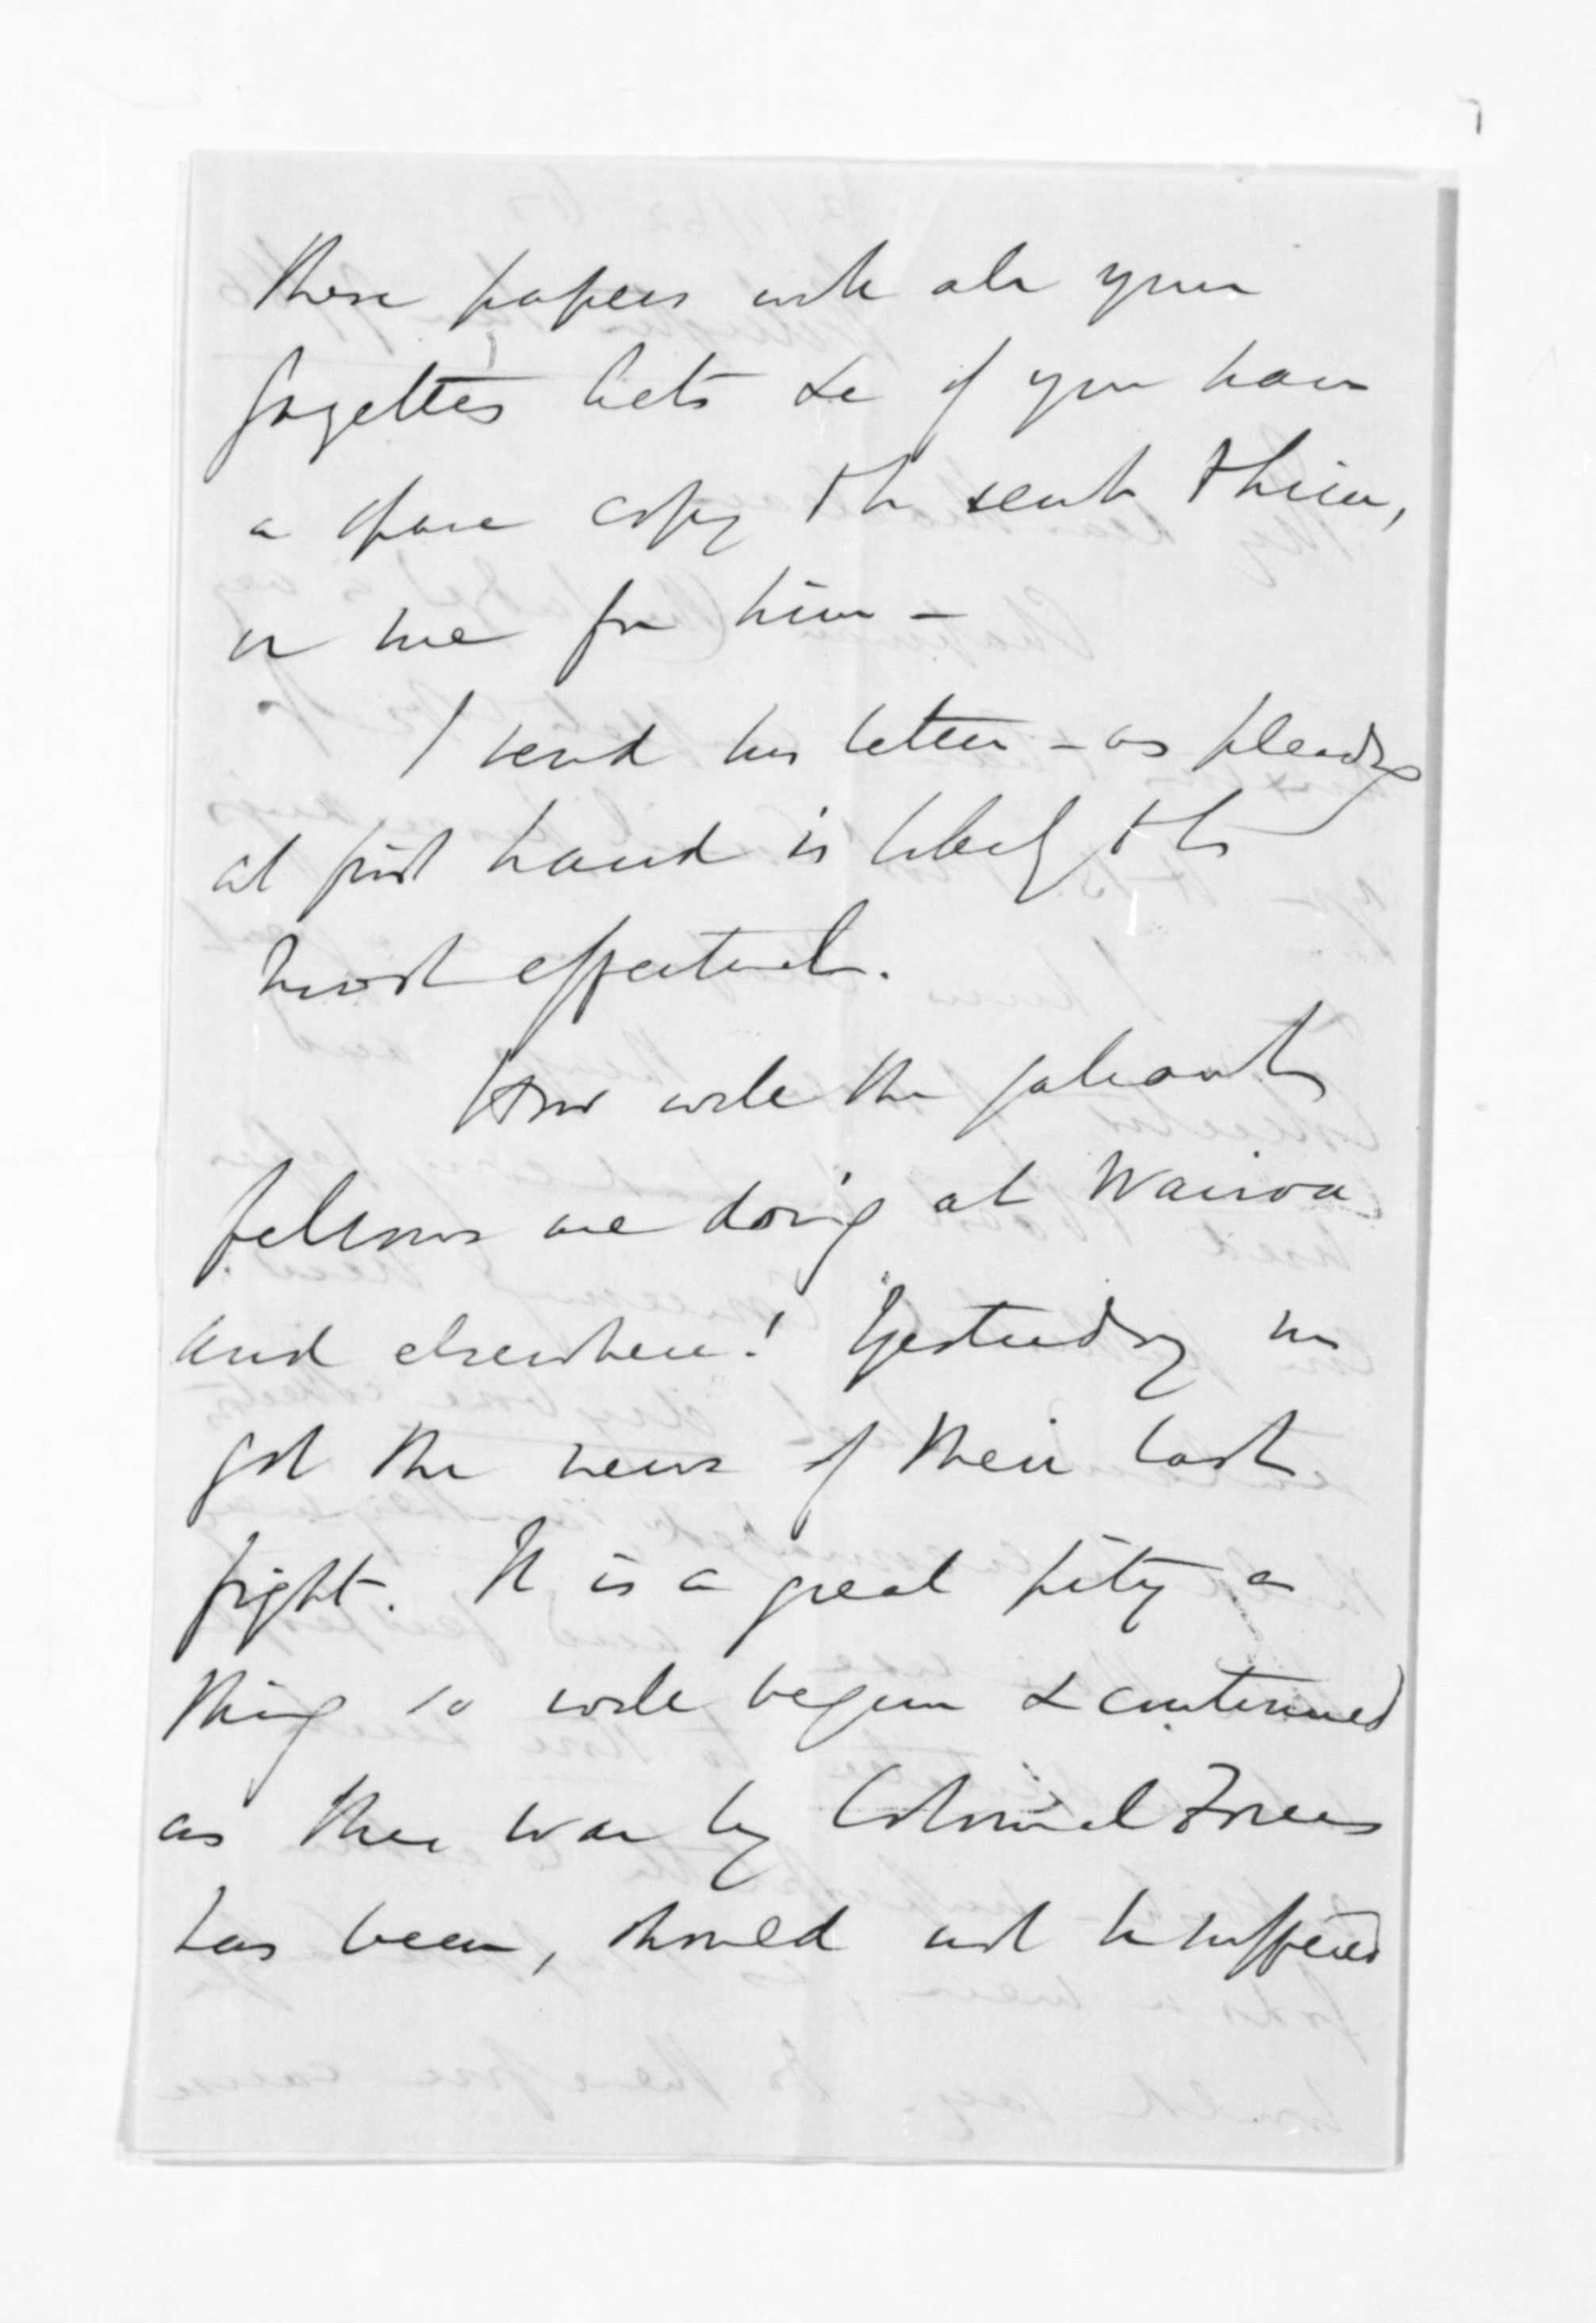 these papers with all your
Gazettes Acts &c if you have
a spare copy to be sent to him,
or me for him -
I send his letter - as pleading
at first hand is likely to be
most effectual.
How well the gallant
fellows are doing at Wairoa
and elsewhere! Yesterday we
got the news of their last
fight. It is a great pity a
thing so well begun & continued
as this war by Colonial Forces
has been, should not be suffered